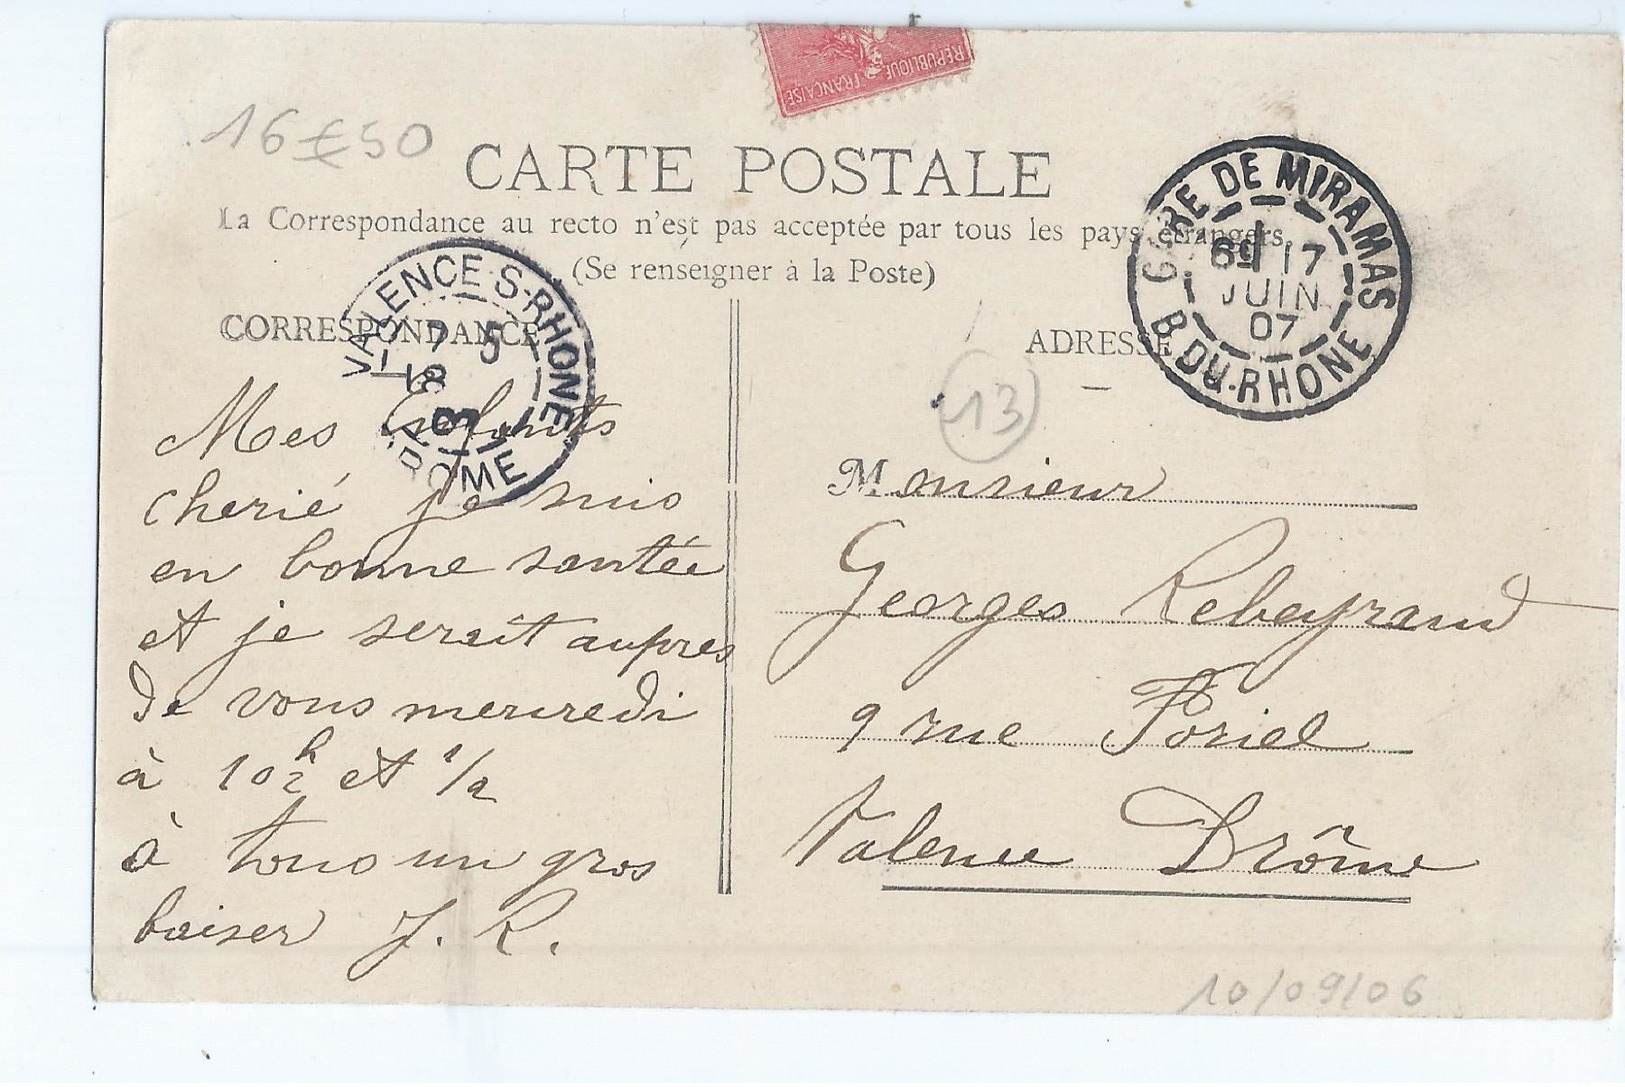 REPUBLIQUE FRANÇAISE
16€50
CARTE POSTALE
La Correspondance au recto n'est pas acceptée par tous les pays étrangers.
(Se renseigner à la Poste)
CORRESPONDANCE
VALENCE-S-RHONE
7 5
18
DROME
Mes Enfants
cherié je suis
en bonne santée
et je serait aupres
de vous mercredi
à 10h et 1/2
à tous un gros
baiser J. R.
ADRESSE
GARE DE MIRAMAS
17
JUIN
07
B. DU-RHONE
13
Monsieur
Georges Rebeyrand
9 rue Foriel
Valence Drôme
10/09/06